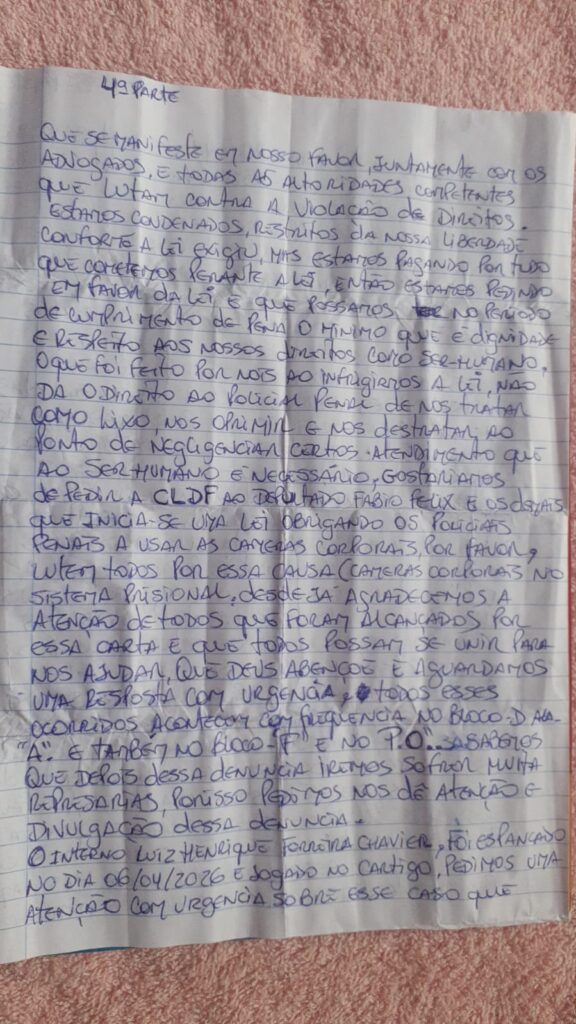 4ª PARTE
QUE SE MANIFESTE EM NOSSO FAVOR, JUNTAMENTE COM OS
ADVOGADOS, E TODAS AS AUTORIDADES COMPETENTES
QUE LUTAM CONTRA A VIOLAÇÃO DE DIREITOS.
ESTAMOS CONDENADOS, RESTRITOS DA NOSSA LIBERDADE
CONFORTE A LEI EXIGIU, MAS ESTAMOS PAGANDO POR TUDO
QUE COMETEMOS PERANTE A LEI, ENTÃO ESTAMOS PEDINDO
EM FAVOR DA LEI E QUE POSSAMOS TER NO PERÍODO
DE CUMPRIMENTO DE PENA O MINIMO QUE É DIGNIDADE
E RESPEITO AOS NOSSOS DIREITOS COMO SER-HUMANO,
O QUE FOI FEITO POR NOIS AO INFRIGIRMOS A LEI, NÃO
DA O DIREITO AO POLICIAL PENAL DE NOS TRATAR
COMO LIXO, NOS OPRIMIR E NOS DESTRATAR, AO
PONTO DE NEGLIGENCIAR CERTOS ATENDIMENTO QUE
AO SER HUMANO E NECESSÁRIO, GOSTARIAMOS
DE PEDIR A CLDF AO DEPUTADO FABIO FELIX E OS DEMAIS
QUE INICIA-SE UMA LEI OBRIGANDO OS POLICIAIS
PENAIS A USAR AS CAMERAS CORPORAIS, POR FAVOR,
LUTEM TODOS POR ESSA CAUSA (CAMERAS CORPORAIS NO
SISTEMA PRISIONAL, DESDE JÁ AGRADECEMOS A
ATENÇÃO DE TODOS QUE FORAM ALCANÇADOS POR
ESSA CARTA E QUE TODOS POSSAM SE UNIR PARA
NOS AJUDAR, QUE DEUS ABENÇOE E AGUARDAMOS
UMA RESPOSTA COM URGENCIA! TODOS ESSES
OCORRIDOS ACONTECEM COM FREQUENCIA NO BLOCO-D ALA-
"A". E TAMBÉM NO BLOCO-"F" E NO P.O". SABEMOS
QUE DEPOIS DESSA DENUNCIA IREMOS SOFRER MUITA
REPRESARIAS, PORISSO PEDIMOS NOS DÊ ATENÇÃO E
DIVULGAÇÃO DESSA DENUNCIA.
O INTERNO LUIZ HENRIQUE FERREIRA CHAVIER, FOI ESPANCADO
NO DIA 06/04/2026 E JOGADO NO CASTIGO, PEDIMOS UMA
ATENÇÃO COM URGENCIA SOBRE ESSE CASO QUE